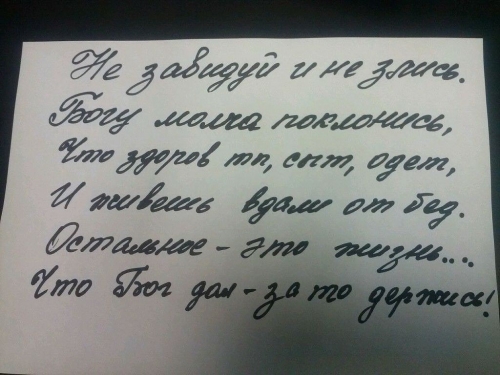 Не завидуй и не злись.
Богу молча поклонись,
Что здоров ты, сыт, одет,
И живешь вдали от бед.
Остальное - это жизнь....
Что Бог дал - за то держись!